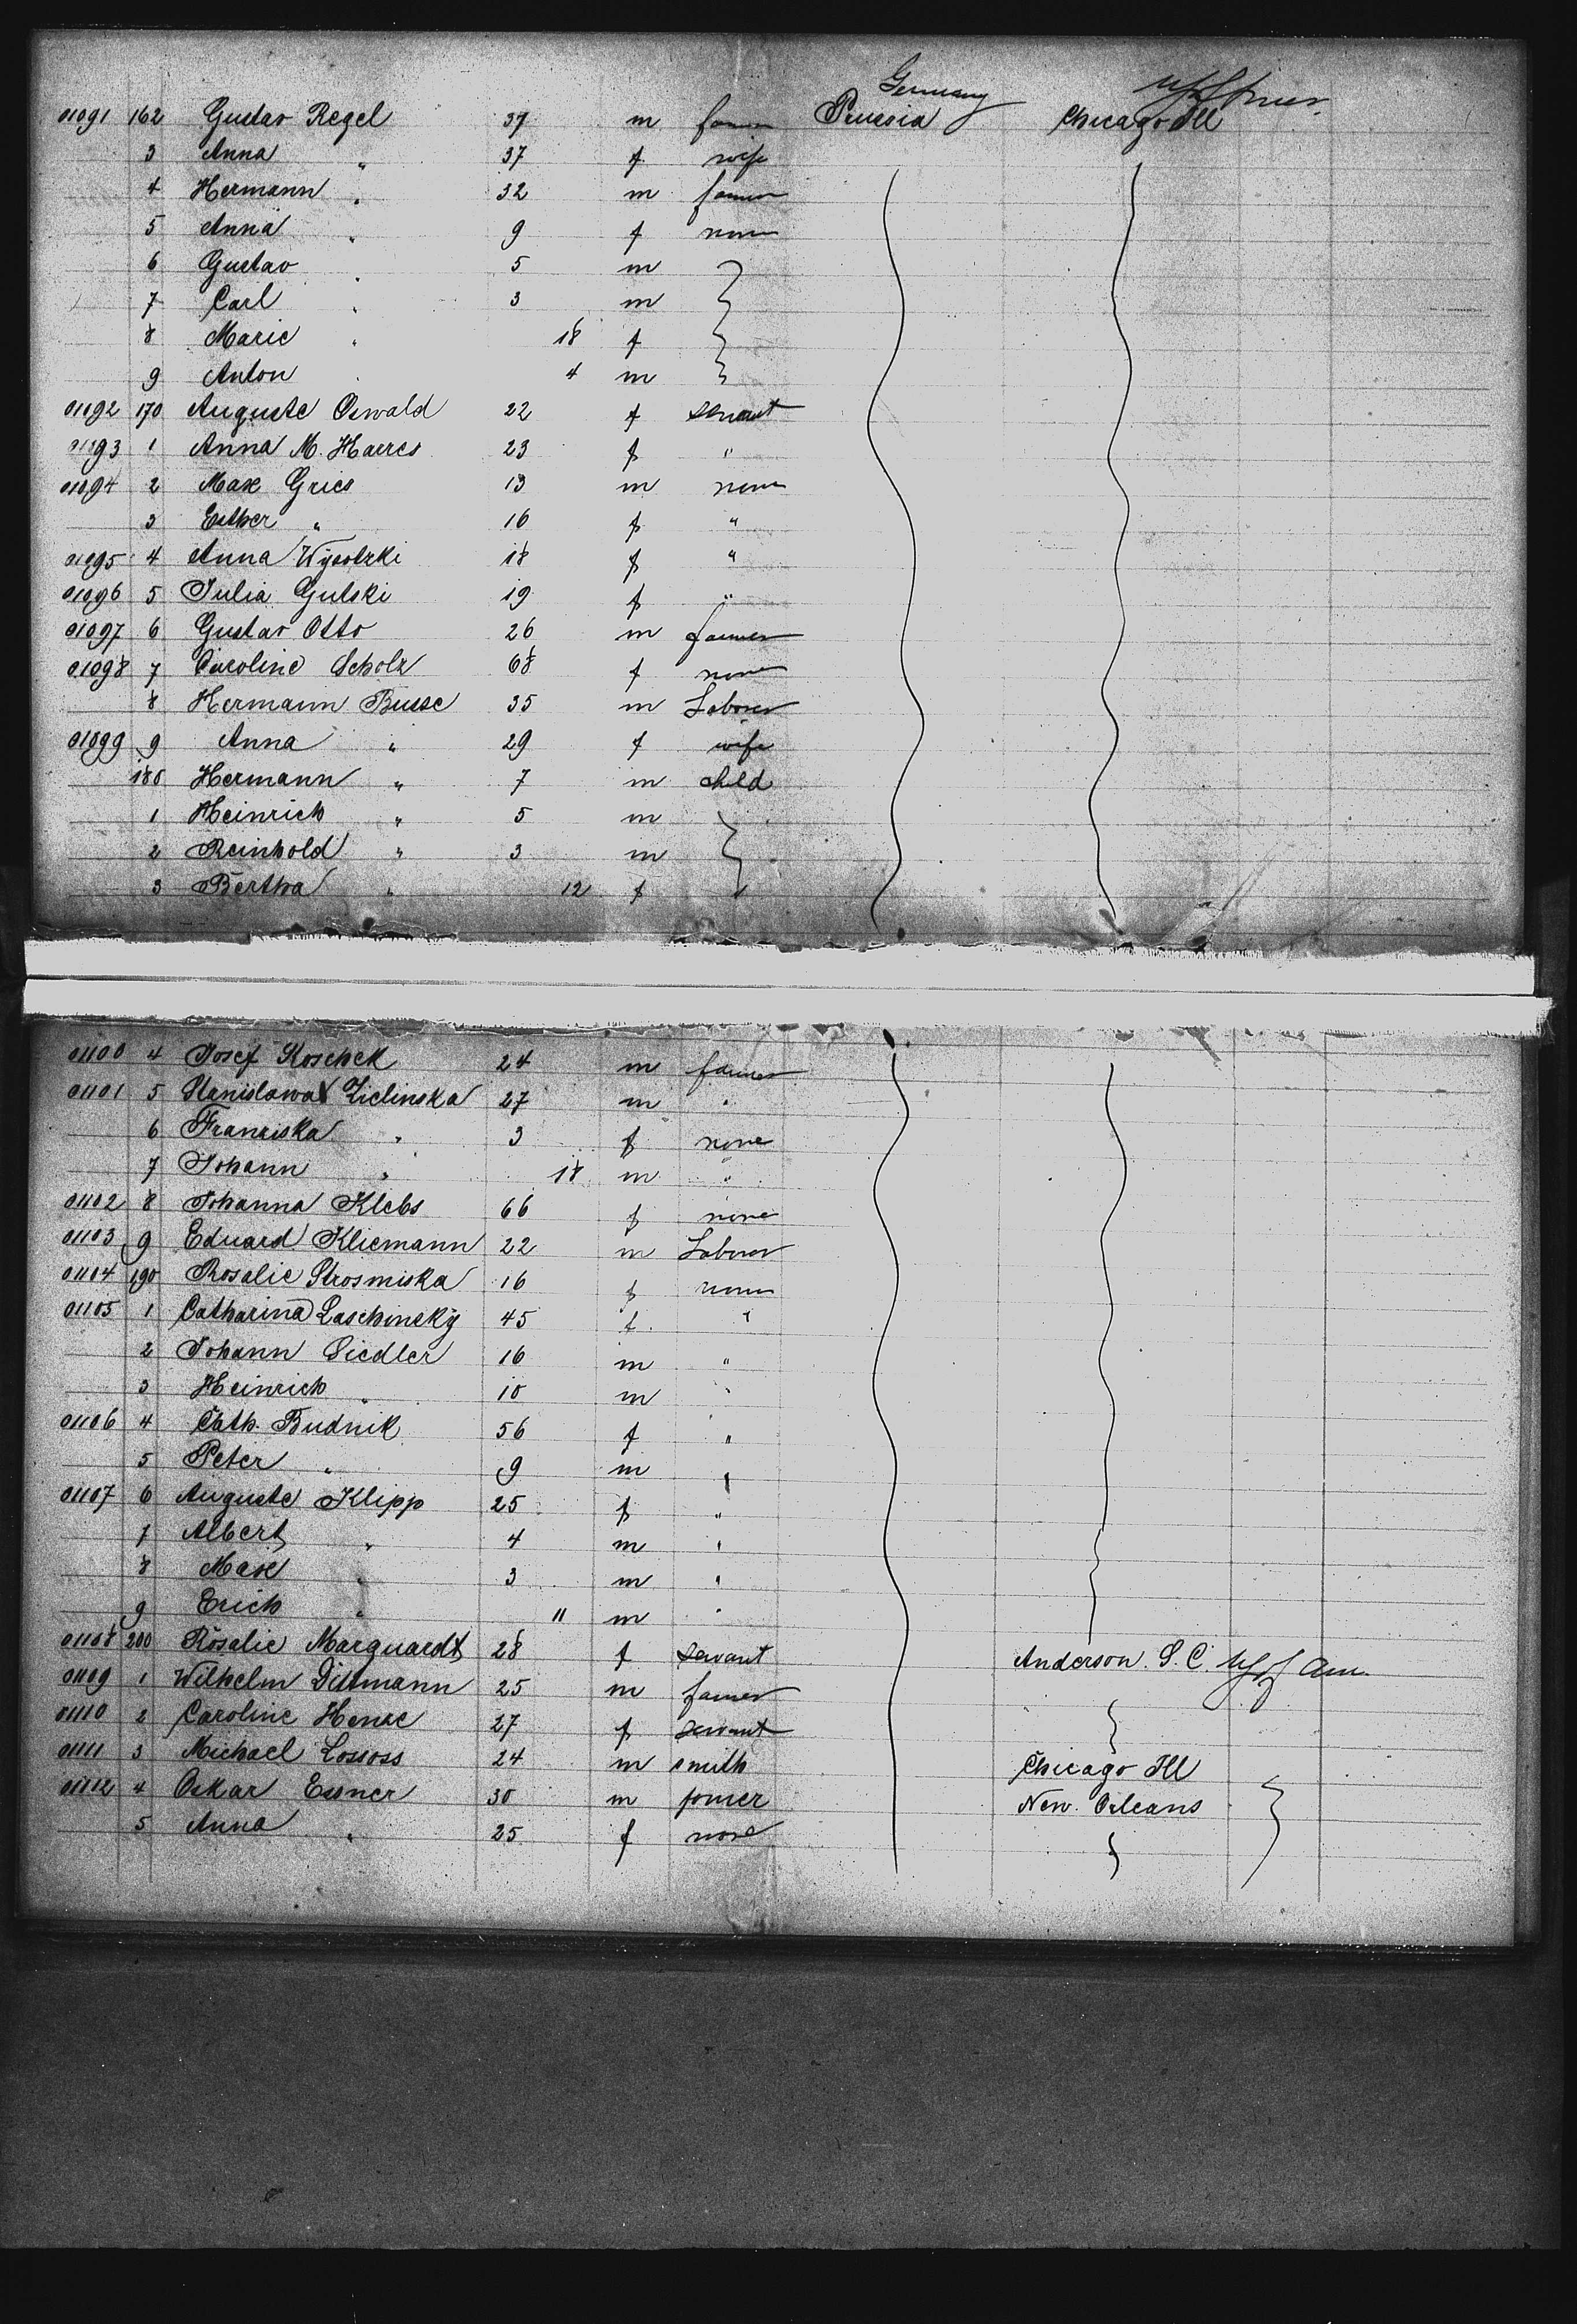 Germany
01091 162 Gustav Regel 37 m farmer Prussia Chicago Ill
3 Anna " 37 f wife
4 Hermann " 32 m farmer
5 Anna " 9 f none
6 Gustav " 5 m
7 Carl " 3 m
8 Marie " 18 f
9 Anton 4 m
01092 170 Auguste Oswald 22 f servant
01093 1 Anna M. Harres 23 f "
01094 2 Max Gries 13 m none
3 Esther " 16 f "
01095 4 Anna Wysotzki 18 f "
01096 5 Julia Gulski 19 f "
01097 6 Gustav Otto 26 m farmer
01098 7 Caroline Scholz 68 f none
8 Hermann Busse 35 m Laborer
01099 9 Anna " 29 f wife
180 Hermann " 7 m child
1 Heinrich " 5 m
2 Reinhold " 3 m
3 Bertha " 12 f
01100 4 Josef Koschek 24 m farmer
01101 5 Stanislawa Zielinska 27 m "
6 Franziska " 3 f none
7 Johann " 18 m "
01102 8 Johanna Klebs 66 f none
01103 9 Eduard Kliemann 22 m Laborer
01104 190 Rosalie Strosmiska 16 f none
01105 1 Catharina Laschinsky 45 f "
2 Johann Siedler 16 m "
3 Heinrich " 10 m "
01106 4 Cath. Budnik 56 f "
5 Peter " 9 m "
01107 6 Auguste Klipp 25 f "
7 Albert " 4 m "
8 Max " 3 m "
9 Erich " 11 m "
01108 200 Rosalie Marquardt 28 f servant Anderson. S. C.
01109 1 Wilhelm Dittmann 25 m farmer
01110 2 Caroline Henze 27 f servant
01111 3 Michael Lossoss 24 m smith Chicago Ill
01112 4 Oskar Essner 30 m farmer New. Orleans
5 Anna " 25 f none